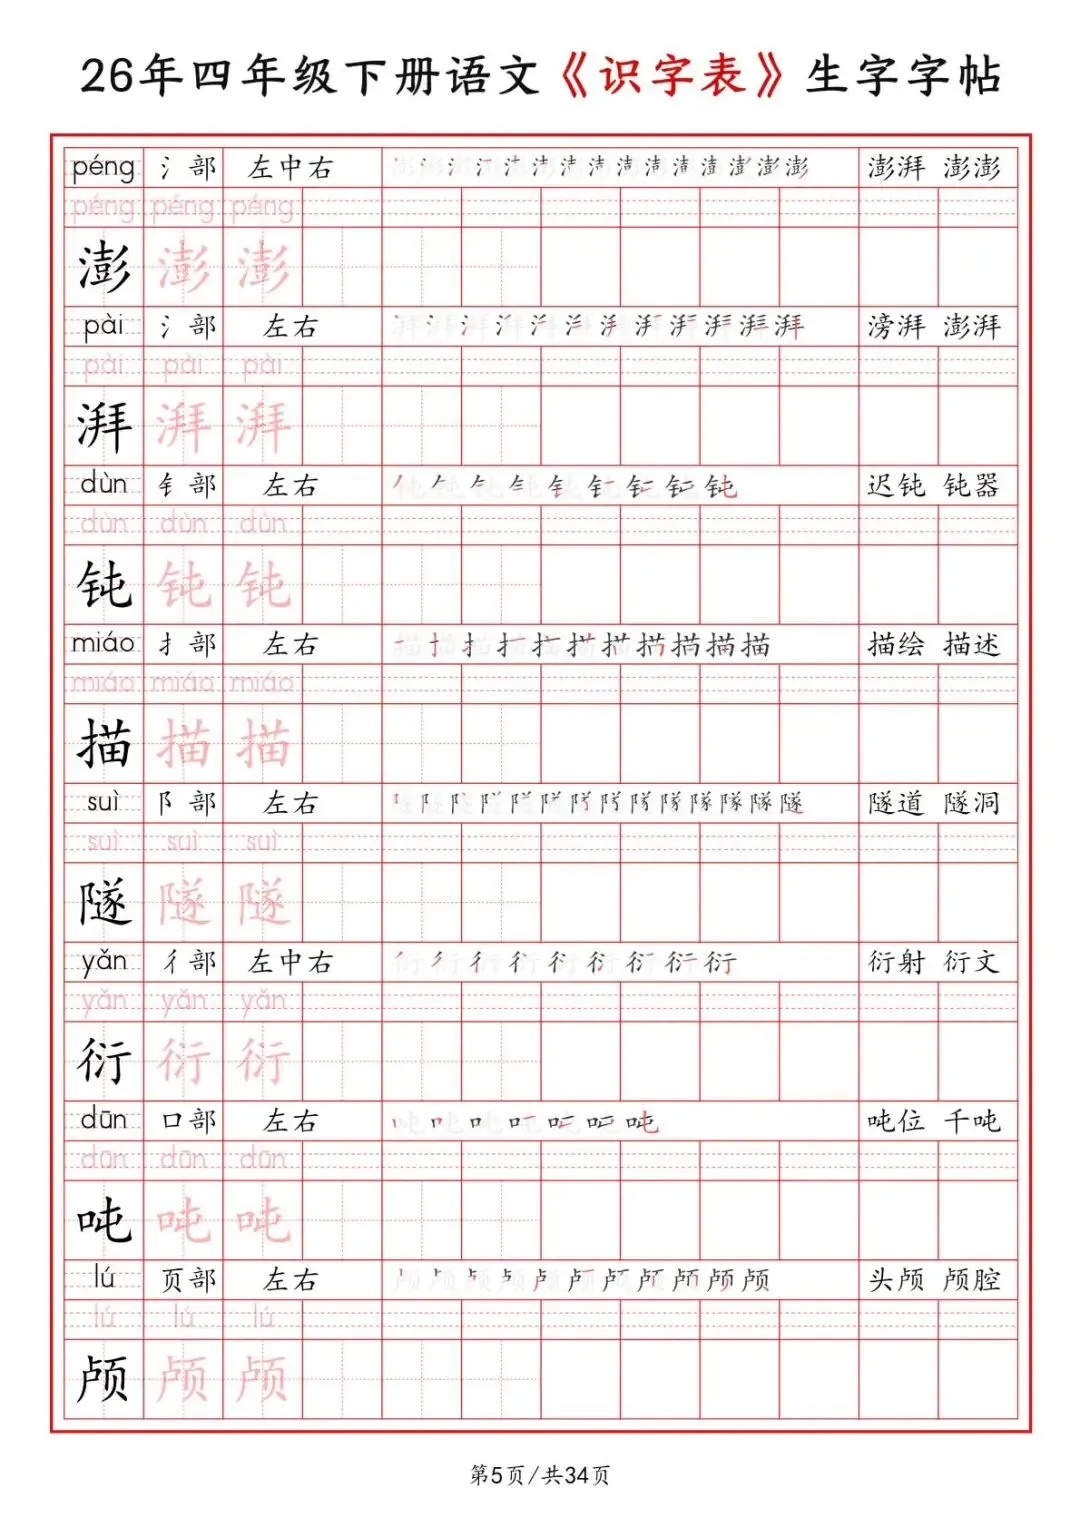 26年四年级下册语文《识字表》生字字帖
péng 氵部 左中右 澎湃 澎澎
péng péng péng
澎 澎 澎
pài 氵部 左右 滂湃 澎湃
pài pài pài
湃 湃 湃
dùn 钅部 左右 迟钝 钝器
dùn dùn dùn
钝 钝 钝
miáo 扌部 左右 描绘 描述
miáo miáo miáo
描 描 描
suì 阝部 左右 隧道 隧洞
suì suì suì
隧 隧 隧
yǎn 彳部 左中右 衍射 衍文
yǎn yǎn yǎn
衍 衍 衍
dūn 口部 左右 吨位 千吨
dūn dūn dūn
吨 吨 吨
lú 页部 左右 头颅 颅腔
lú lú lú
颅 颅 颅
第5页/共34页